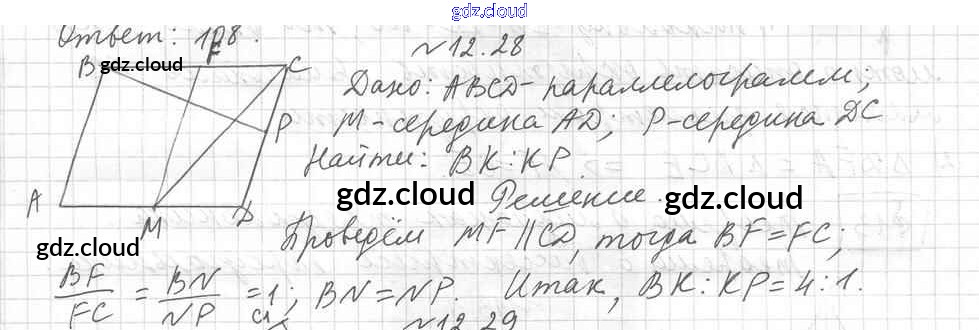 gdz.cloud
Ответ: 108.
№12.28
B gdz.cloud F C
Дано: ABCD-параллелограмм;
M-середина AD; P-середина DC
P
Найти: BK:KP.
gdz.cloud Решение. gdz.cloud
A M D
Проведём MF∥CD, тогда BF=FC;
gdz.cloud
BF/FC = BN/NP = 1; BN=NP. Итак, BK:KP=4:1.
№12.29